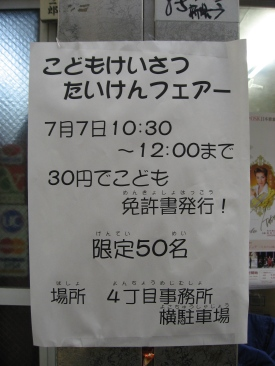 こどもけいさつ
たいけんフェアー
7月7日10:30
～12:00まで
30円でこども
めんきょしょはっこう
免許書発行！
げんてい めい
限定50名
ばしょ よんちょうめじむしょ
場所 4丁目事務所
よこちゅうしゃじょう
横駐車場